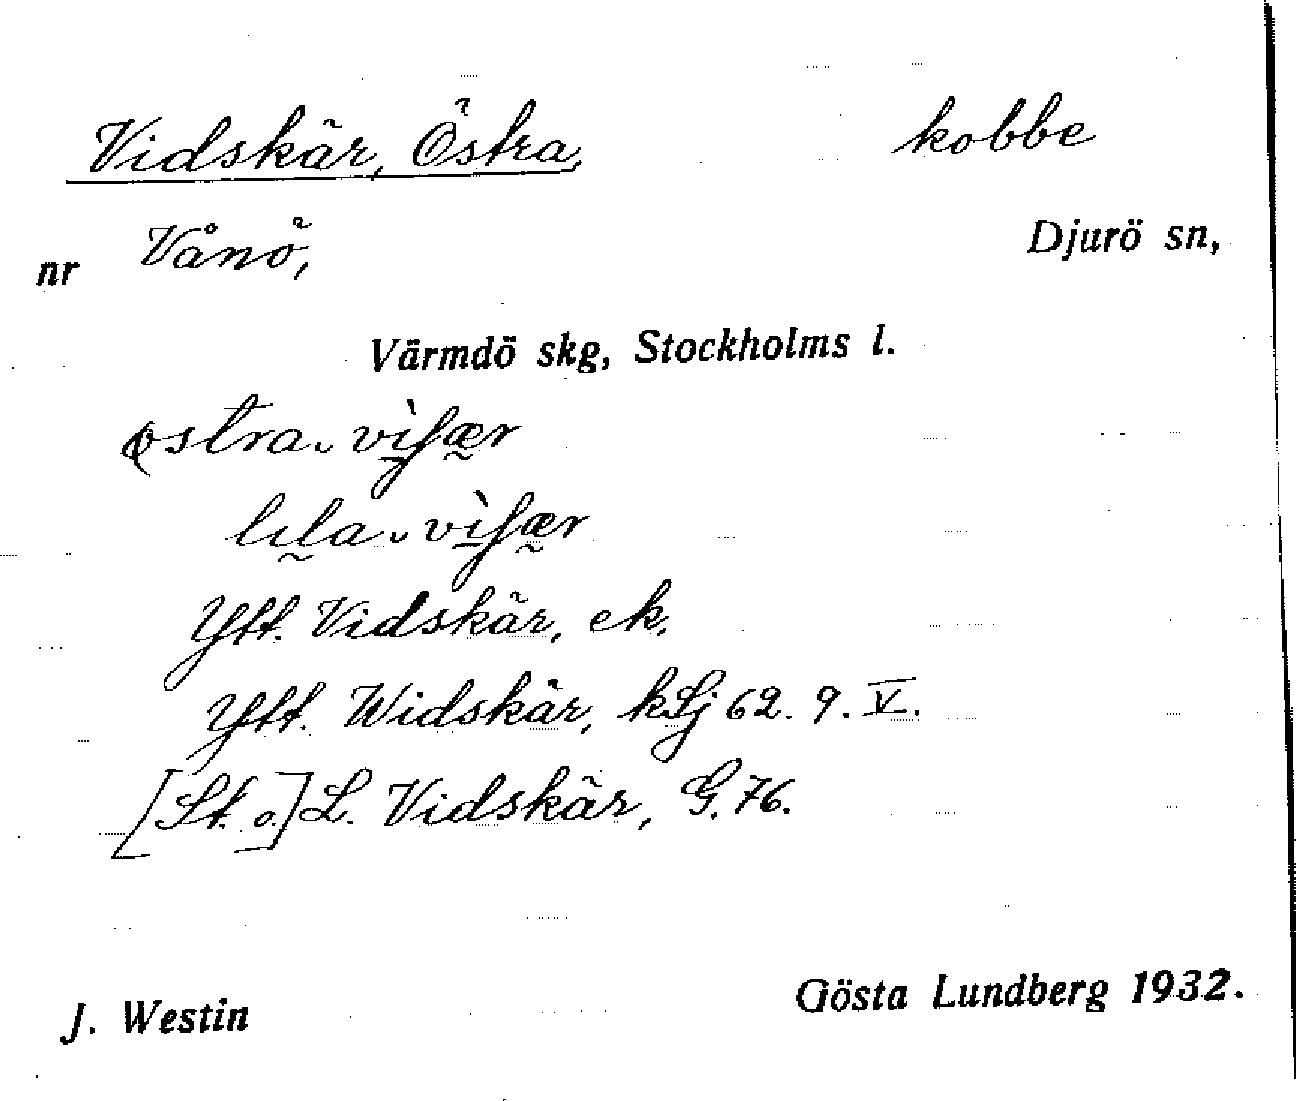 Vidskär, Östra, kobbe
nr Vånö, Djurö sn,
Värmdö skg, Stockholms l.
ɷstra vi̠ʃær
lıla vi̠ʃær
Ytt. Vidskär, ek.
Ytt. Widskär, kSj 62. 9. V.
[St. o.] L. Vidskär, G. 76.
J. Westin Gösta Lundberg 1932.